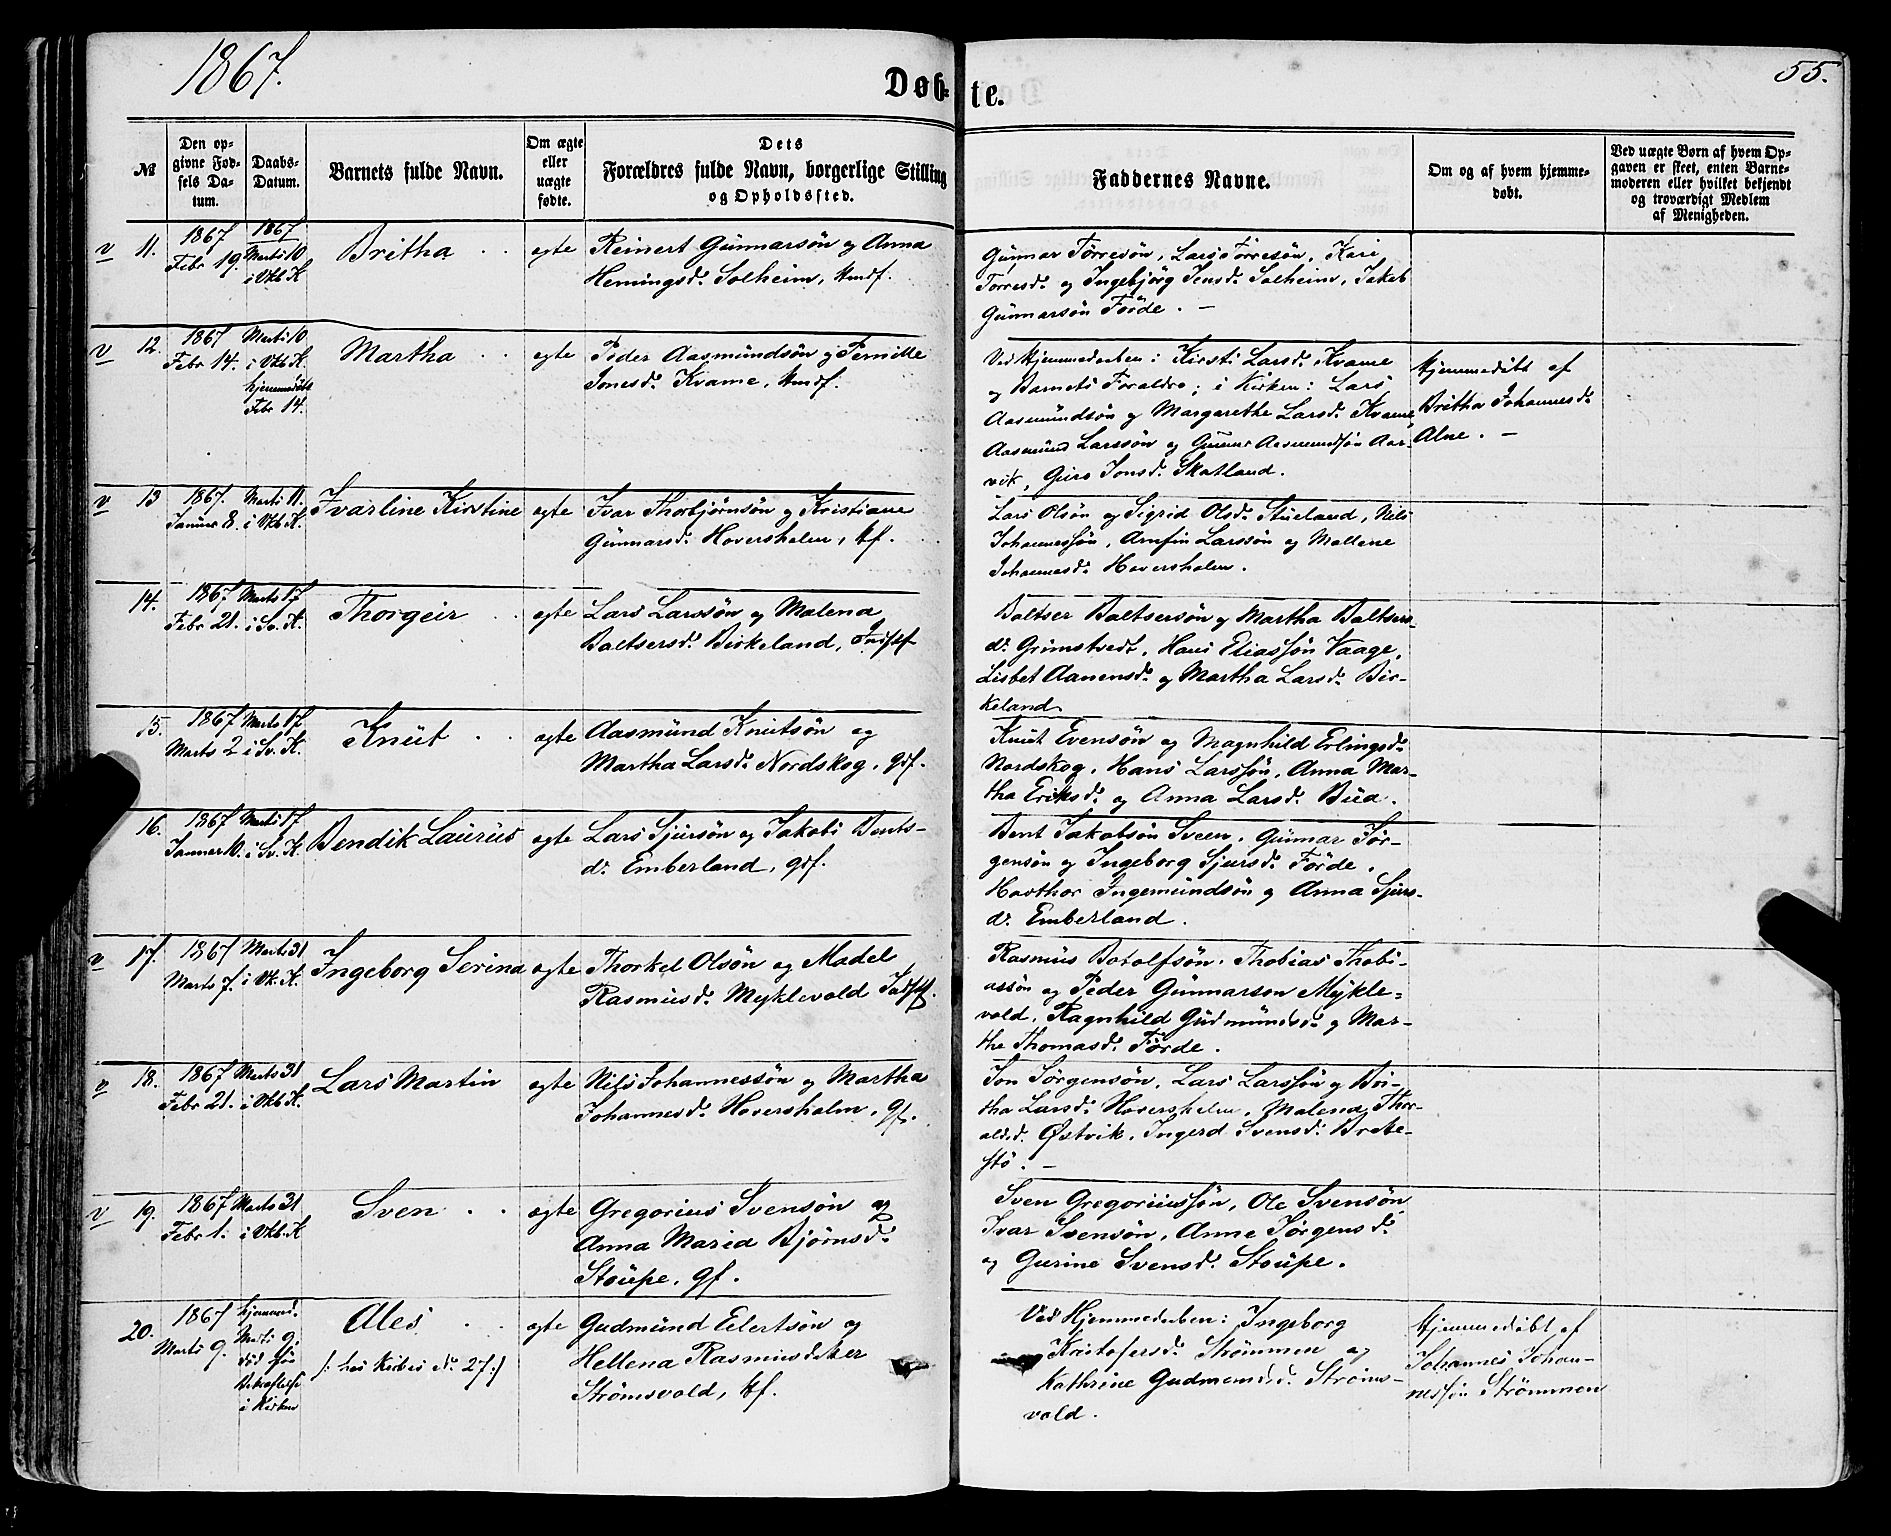 1867.
55.
Døb-
te.
№
Den op-
givne Fød-
sels Da-
tum.
Daabs-
Datum.
Barnets fulde Navn.
Om ægte
eller
uægte
fødte.
Dets
Forældres fulde Navn, borgerlige Stilling
og Opholdssted.
Faddernes Navne.
Om og af hvem hjemme-
døbt.
Ved uægte Børn af hvem Op-
gaven er skeet, enten Barne-
moderen eller hvilket bekjendt
og troværdigt Medlem
af Menigheden.
v 11.
1867
Febr 19.
1867
Marts 10
i Vkb K.
Britha
ægte
Reinert Gunnarsøn og Anna
Hemingsd. Solheim, Hmdf.
Gunnar Tørresøn, Lars Tørresøn, Kari
Torresd. og Ingebjörg Jensd. Solheim, Jakob
Gunnarsøn Förde. —
v 12.
1867
Febr 14.
Marts 10
i Vkb K.
hjemmedöbt
Febr 14.
Martha
ægte
Peder Aasmundsøn og Pernille
Jonesd. Kvame, Hmdf.
Ved Hjemmedaaben: Kirsti Larsd. Kvame
og Barnets Foraldre; i Kirken: Lars
Aasmundsøn og Margarethe Larsd. Kvame,
Aasmund Larssøn og Gunnar Aasmundsøn Aar-
vik, Guro Jonsd. Skatland.
Hjemmedöbt af
Britha Johannesd.
Alne. —
v 13
1867.
Januar 8.
Marts 11.
i Vkb K.
Ivarline Kirstine
ægte
Ivar Thorbjörnsøn og Kristiane
Gunnarsd. Hoversholm, Hf.
Lars Olsøn og Sigrid Olsd. Stueland, Nils
Johannessøn, Arnfin Larssøn og Mallene
Johannesd. Hoversholm.
14.
1867
Febr 21.
Marts 17
i Sv. K.
Thorgeir
ægte
Lars Larssøn og Malena
Baltsersd. Birkeland, Indstf
Baltser Baltsersøn og Martha Baltsers-
d. Grimstvedt, Hans Eliassøn Vaage,
Lisbet Aanensd. og Martha Larsd. Bir-
keland.
15.
1867
Marts 2
Marts 17
i Sv. K.
Knut
ægte
Aasmund Knutsøn og
Martha Larsd. Nordskog, gdf.
Knut Evensøn og Magnhild Erlingsd.
Nordskog, Hans Larssøn, Anna Mar-
tha Eriksd. og Anna Larsd. Bua.
16.
1867
Januar 10.
Marts 17.
i Sv. K.
Bendik Laurus
ægte
Lars Sjursøn og Jakobi Bents-
d. Emberland, gdf.
Bent Jakobsøn Sveen, Gunnar Jör-
gensøn og Ingeborg Sjursd. Förde,
Havthor Ingemundsøn og Anna Sjurs-
d. Emberland.
v 17.
1867
Marts 7.
Marts 31
i Vk. K.
Ingeborg Serina
ægte
Thorkel Olsøn og Madel
Rasmusd. Myklevold Indstf.
Rasmus Botolfsøn, Thobias Thobi-
assøn og Peder Gunnarsøn Mykle-
vold, Ragnhild Gudmundsd. og Mar-
the Thomasd. Förde.
v 18.
1867
Febr 21.
Marts 31
i Vkb K.
Lars Martin
ægte
Nils Johannessøn og Martha
Johannesd. Hoversholm, gf.
Jon Jörgensøn, Lars Larssøn og Bri-
tha Larsd. Hoversholm, Malena Thor-
aldsd. Østvik, Ingerd Svensd. Brekke-
stö. —
v 19.
1867
Febr 1.
Marts 31
i Vkb. K
Sven
ægte
Gregorius Svensøn og
Anna Maria Bjørnsd.
Stoupe, gf.
Sven Gregoriussøn, Ole Svensøn,
Ivar Svensøn, Anne Jörgensd.
og Gurine Svensd. Stoupe.
20.
1867
Marts 9.
hjemmed.
Marts 9,
död før
Bekræftelse
i Kirken
Ales
ægte
Gudmund Eilertsøn og
Hellena Rasmusdatter
Strömsvold, Hf.
Ved Hjemmedaaben: Ingeborg
Kristofersd. Strömmen og
Kathrine Gudmundsd. Ströms-
vold.
Hjemmedöbt af
Johannes Johan-
nessøn Strømmen